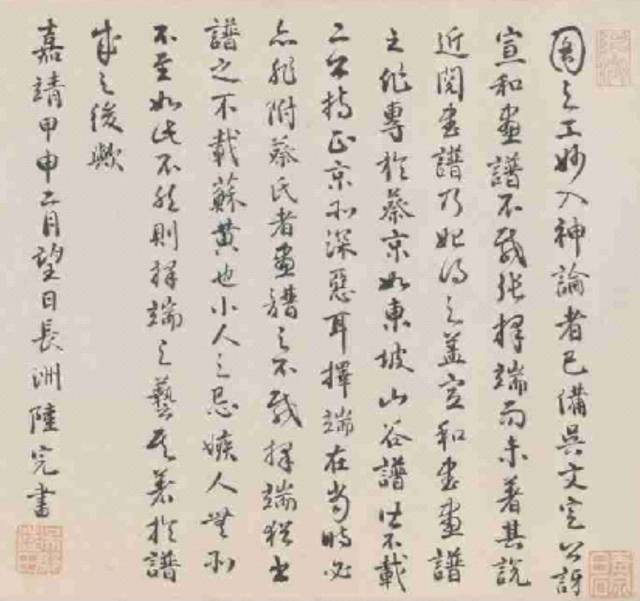 圖之工妙入神論者已備吳文定公訝
宣和畫譜不載張擇端而未著其說
近閱書譜乃始得之蓋宣和書畫譜
之作專於蔡京如東坡山谷譜皆不載
二公持正京所深惡耳擇端在當時必
亦非附蔡氏者畫譜之不載擇端猶書
譜之不載蘇黃也小人之忌嫉人無所
不至如此不然則擇端之藝其著於譜
成之後歟
嘉靖甲申二月望日長洲陸完書